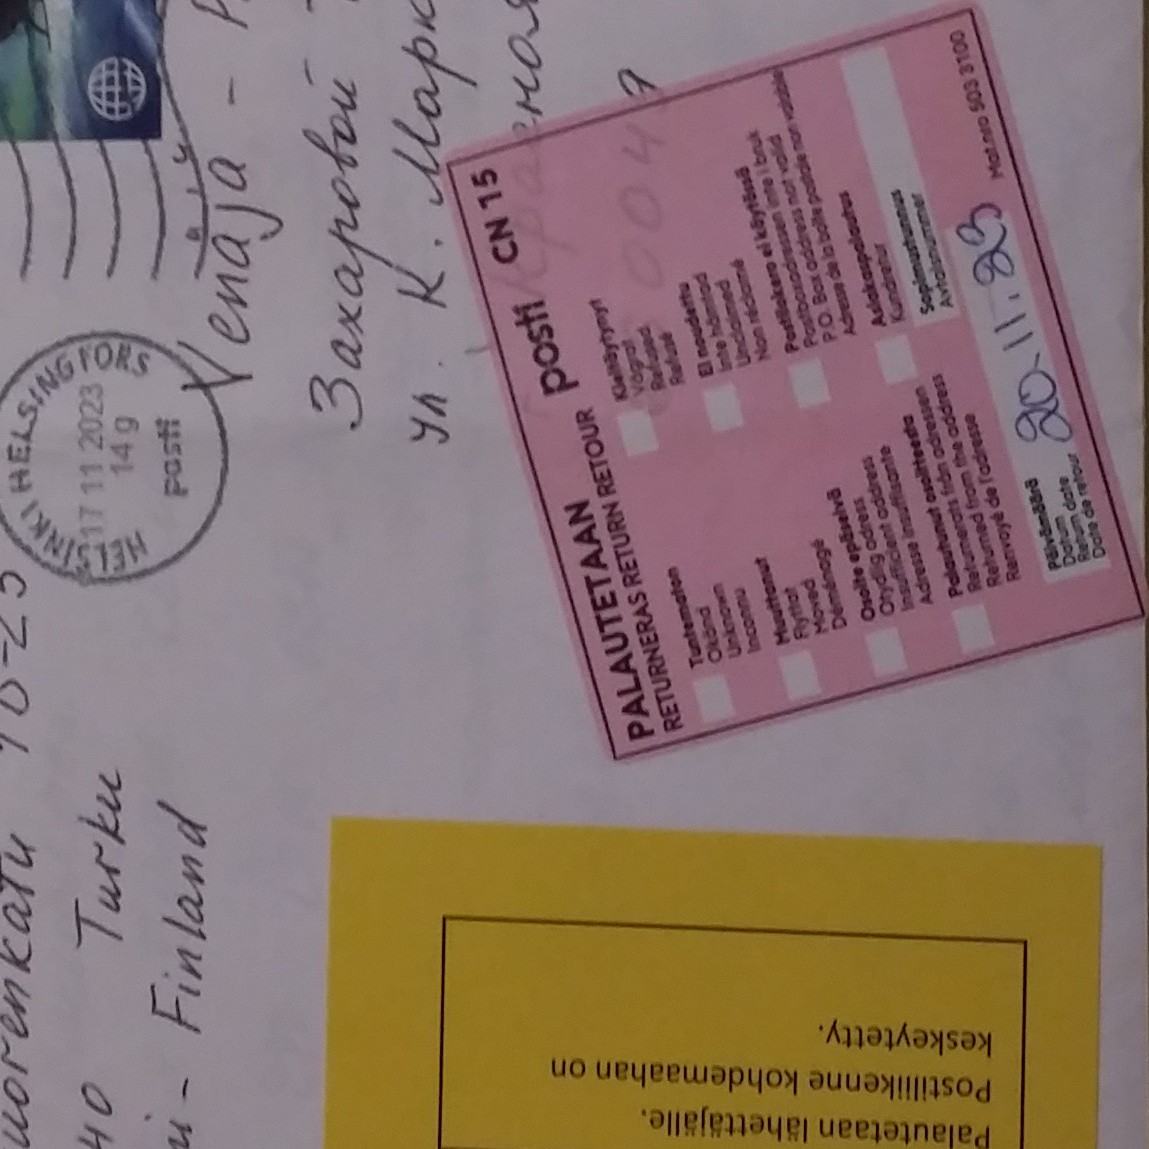 HELSINKI HELSINGFORS
17 11 2023
14 g
posti
HELSINKI HELSINGFORS
10-23
Turku
- Finland
Venäjä -
Захаровой
ул. К. Марк
PALAUTETAAN posti CN 15
RETURNERAS RETURN RETOUR
Tuntematon
Okänd
Unknown
Inconnu
Muuttanut
Flyttat
Moved
Déménagé
Osoite epäselvä
Otydlig address
Insufficient address
Adresse insuffisante
Palauhunut osoitteesta
Returnerats från adressen
Returned from the address
Renvoyé de l'adresse
Kieltäytynyt
Vägrat
Refused
Refusé
Ei noudettu
Inte hämtad
Unclaimed
Non réclamé
Postilokero ei käytössä
Postboxadressen inte i bruk
P.O. Box address not valid
Adresse de la boîte postale non valable
Asiakaspalautus
Kundretur
Sopimustunnus
Avtalsnummer
Päivämäärä
Datum
Return date
Date de retour
20.11.23
Mat nro 503 3100
Palautetaan lähettäjälle.
Postiliikenne kohdemaahan on
keskeytetty.